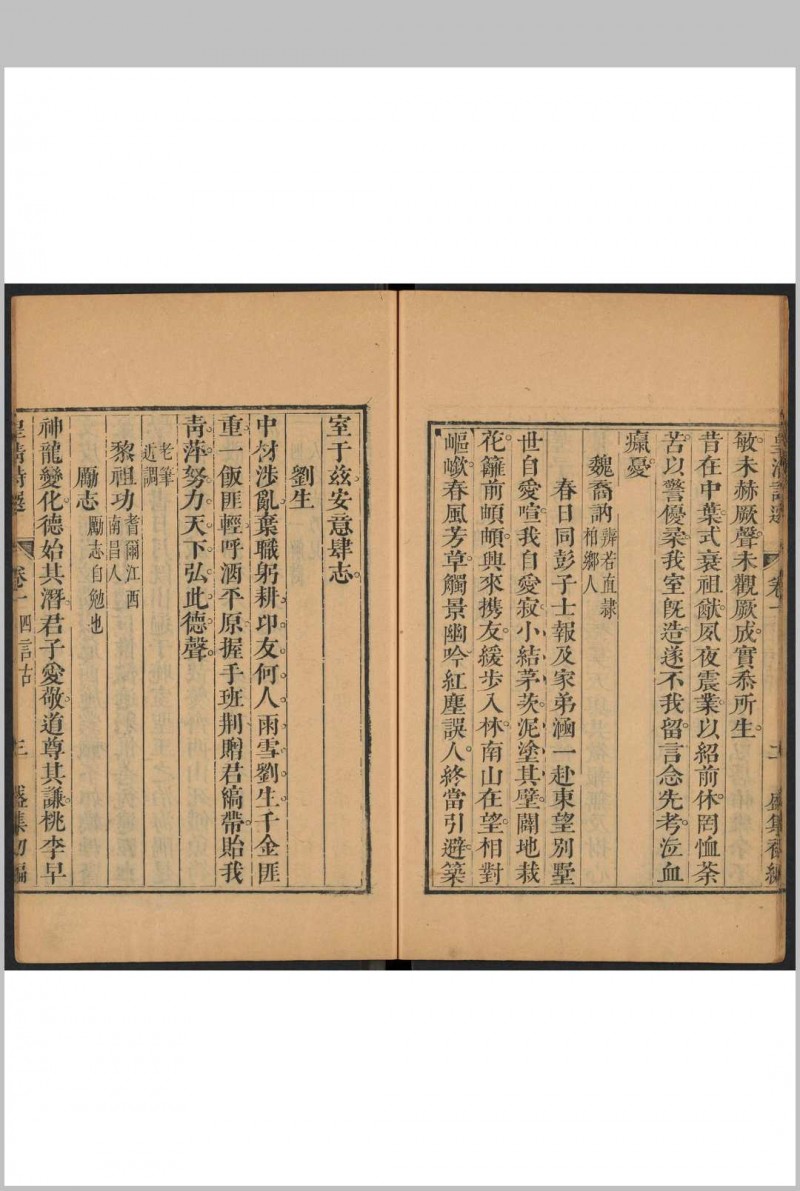 皇清詩選 卷一 二 盛集初編
敏未赫厥聲未觀厥成實忝所生
昔在中葉式衰祖猷夙夜震業以紹前休罔恤荼
苦以警優柔我室旣造遂不我留言念先考泣血
瘋憂
魏裔訥 辨若直隸
柏鄉人
春日同彭子士報及家弟涵一赴東望別墅
世自愛喧我自愛寂小結茅茨泥塗其壁闢地栽
花籬前㟮㟮興來携友緩步入林南山在望相對
嶇嶔春風芳草觸景幽吟紅塵誤人終當引避築
室于茲安意肆志
劉生
中材涉亂棄職躬耕卬友何人雨雪劉生千金匪
重一飯匪輕呼酒平原握手班荆贈君縞帶貽我
靑萍努力天下弘此德聲
老筆
近調
黎祖功 耆爾江西
南昌人
勵志 勵志自勉也
神龍變化德始其潛君子愛敬道尊其謙桃李早
皇淸詩選 卷一 四言古 三 盛集初編